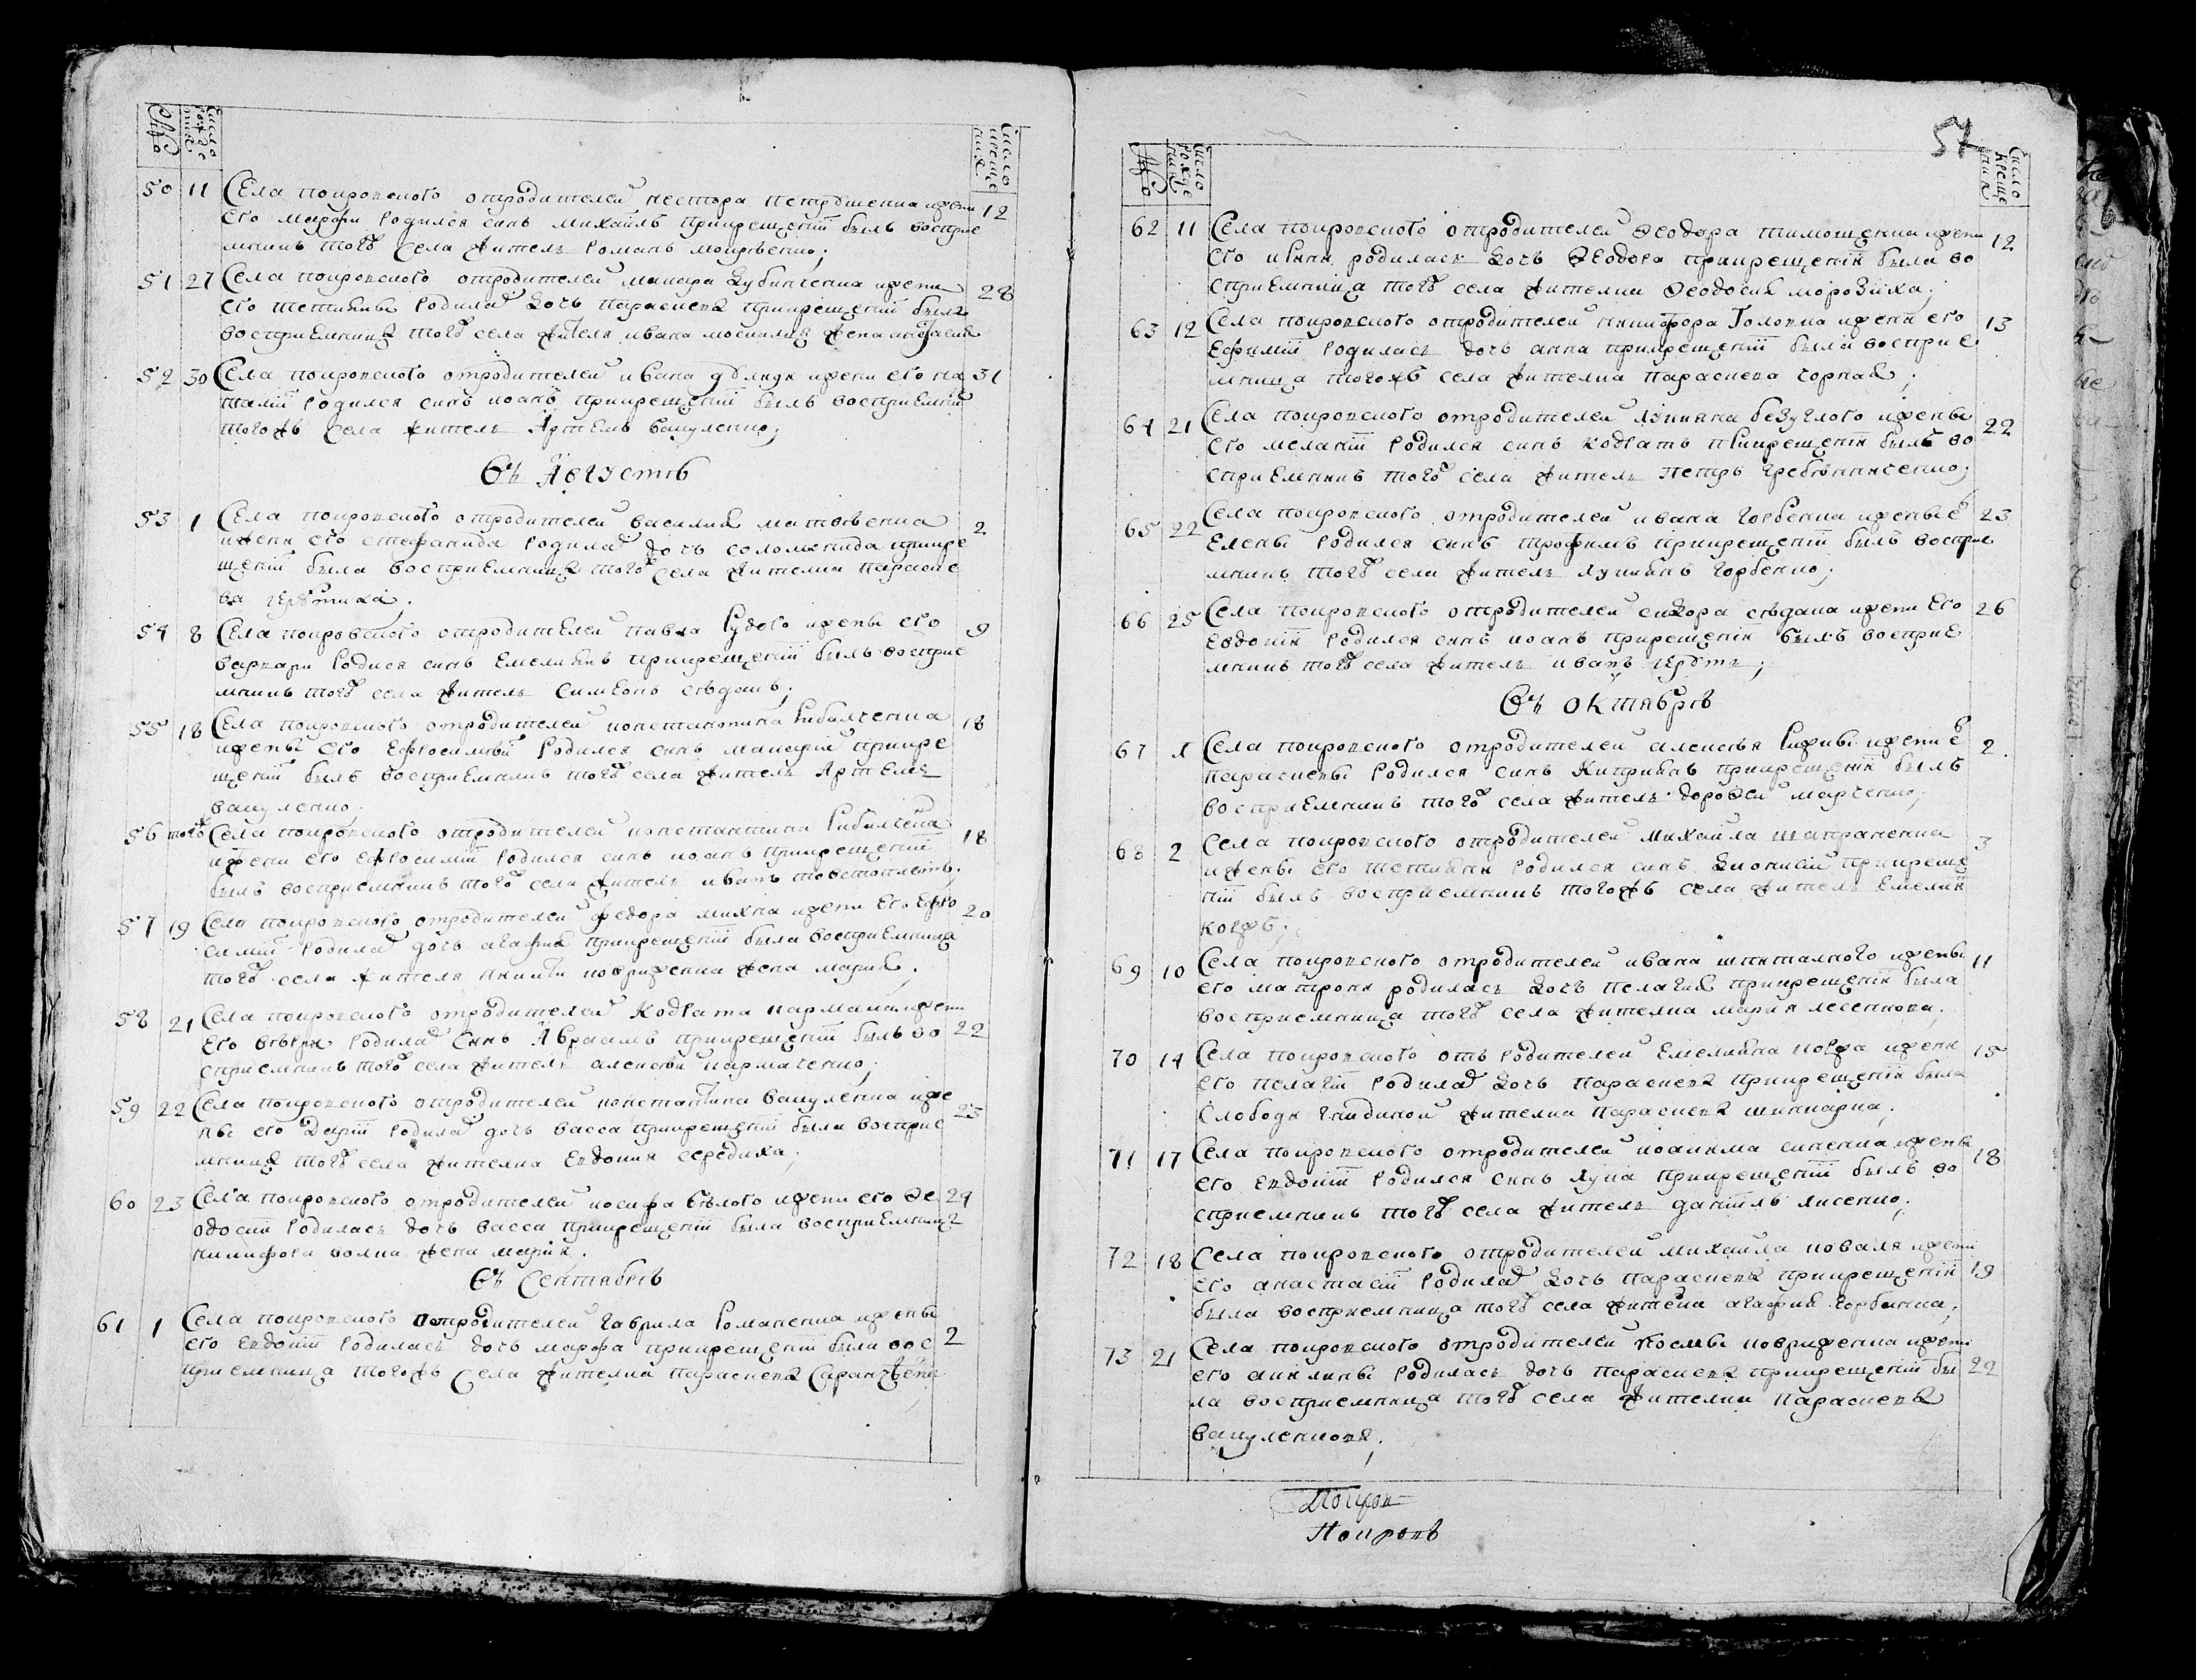 Число рожде ния
Число креще ния
50 11 Села покровского отродителей нестора петрушенка ижени 12
его марфи родился синъ михаилъ прикрещенїи былъ восприе
мникъ тогоѫ села житель романъ мокрѣенко;
51 27 Села покровского отродителей макара зубинченка ижени 28
его тетияны родилас дочь параскева прикрещенїи была
восприемница тогоѫ села жителя ивана москалия жена анастасия
52 30 Села покровского отродителей ивана дблядя ижени его на 31
талїи родился синъ иоанъ прикрещенїи былъ восприемникъ
тогожъ села житель Артемъ вакуленко;
Въ Августѣ
53 1 Села покровского отродителей василия матвѣенка 2
ижени его стефанида родилас дочь соломонида прикре
щенїи была восприемница тогож села жителка параске
ва
54 8 Села покровского отродителей павла Рудого ижены его 9
варвари родися синъ Емелиянъ прикрещенїи былъ восприе
мникъ тогож села житель симеонъ сѣдашъ;
55 18 Села покровского отродителей константина рибалченка 18
ижены его Ефросимїи родился синъ макарїи прикре
щенїи былъ восприемникъ тогож села житель Артемъ
вакуленко;
56 тогож Села покровского отродителей константина рибалченка 18
ижени его ефросимїи родился синъ иоанъ прикрещенїи
былъ восприемникъ тогож села житель иванъ товстоплетъ;
57 19 Села покровского отродителей федора михна ижени его ефро 20
симїи родилас дочь агафия прикрещенїи была восприемница
тогож села жителя никити коврижка жена мария;
58 21 Села покровского отродителей Кодрата кармана ижени
его вѣвѣри родилас Синъ Авраамъ прикрещенїи былъ во 22
сприемникъ тогож села житель алексѣй кармаченко;
59 22 Села покровского отродителей константина вакуленка иже 23
ны его Дарїи родилас дочь васса прикрещенїи была восприе
мница тогож села жителка Евдокия середиха;
60 23 Села покровского отродителей иосифа бѣлого ижени его ѳе 24
одосїи родилась дочь васса прикрещенїи была восприемница
никифора волка жена мария;
Въ Сентябрѣ
61 1 Села покровского отродителей Гаврила Романенка ижены
его Евдокїи родилась дочь марфа прикрещенїи была вос 2
приемница тогожъ села жителка параскева
57
Число рожде ния
Число креще ния
62 11 Села покровского отродителей Ѳеодора тимошенка ижени 12
его ирины родилася дочь Ѳеодора прикрещенїи была во
сприемница тогож села жителка Ѳеодосия морозиха;
63 12 Села покровского отродителей никифора Головка ижени его 13
Ефимїи родилась дочь анна прикрещенїи была восприе
мница тогожъ села жителка параскева чорная;
64 21 Села покровского отродителей лукияна безуглого ижены 22
его меланїи родился синъ кодратъ прикрещенїи былъ во
сприемникъ тогож села житель петръ гребѣнниченко;
65 22 Села покровского отродителей ивана горбенка ижены е 23
Елены родился синъ трофимъ прикрещенїи былъ восприе
мникъ тогож села житель лукиянъ горбенко;
66 25 Села покровского отродителей сидора сѣдаша ижени его 26
Евдокїи родился синъ иоанъ прикрещенїи былъ восприе
мникъ тогож села житель иванъ
Въ октябрѣ
67 1 Села покровского отродителей алексѣя рижви ижени е 2
параскевы родился синъ Киприянъ прикрещенїи былъ
восприемникъ тогож села житель дороѳей марченко;
68 2 Села покровского отродителей михайла шапраненка 3
ижены его тетияни родился синъ дионисїи прикреще
нїи былъ восприемникъ тогожъ села житель Емелиян
коржъ;
69 10 Села покровского отродителей ивана шпиталного ижены 11
его матрони родилась дочь пелагия прикрещенїи была
восприемница тогож села жителка мария лесенкова;
70 14 Села покровского отъ родителей Емелияна коржа ижени 15
его пелагїи родилас дочь параскева прикрещенїи была
Слободи гнидиной жителка параскева шинкарка;
71 17 Села покровского отродителей иоакима синенка ижены 18
его Евдокїи родился синъ лука прикрещенїи былъ во
сприемникъ тогож села житель данїилъ лисенко;
72 18 Села покровского отродителей михайла коваля ижени 19
его анастасїи родилас дочь параскева прикрещенїи
была восприемница тогож села жителка агафия горбанка;
73 21 Села покровского отродителей космы коврижка ижени
его акилины родилась дочь параскева прикрещенїи бы 22
ла восприемница тогож села жителка параскева
вакуленкова;
Покров
Покровъ